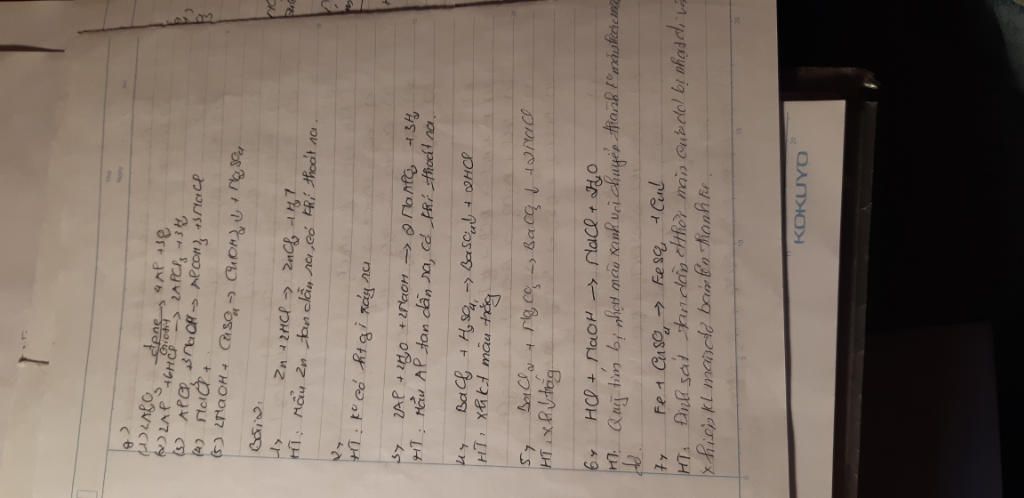 a)
(1) 2Al2O3 đpnc criolit → 4Al + 3O2
(2) 2Al + 6HCl → 2AlCl3 + 3H2
(3) AlCl3 3NaOH → Al(OH)3 + 3NaCl
(4) NaCl +
(5) 2NaOH + CuSO4 → Cu(OH)2 ↓ + Na2SO4
Bài 2:
1, Zn + 2HCl → ZnCl2 + H2↑
HT: Mẩu Zn tan dần ra, có khí thoát ra.
2,
HT: K° có ht gì xảy ra
3, 2Al + 2H2O + 2NaOH → 2NaAlO2 + 3H2
HT: Mẩu Al tan dần ra, có khí thoát ra.
4, BaCl2 + H2SO4 → BaSO4↓ + 2HCl
HT: xh kt màu trắng
5, BaCl2 + Na2CO3 → BaCO3 ↓ + 2NaCl
HT: xh ↓ trắng
6, HCl + NaOH → NaCl + H2O
HT: Quỳ tím bị nhạt màu xanh rồi chuyển thành k° màu
7, Fe + CuSO4 → FeSO4 + Cu↓
HT: Đinh sắt tan dần, màu của dd bị nhạt đi và
xhiện KL màu đỏ bám lên thanh Fe.
KOKUYO